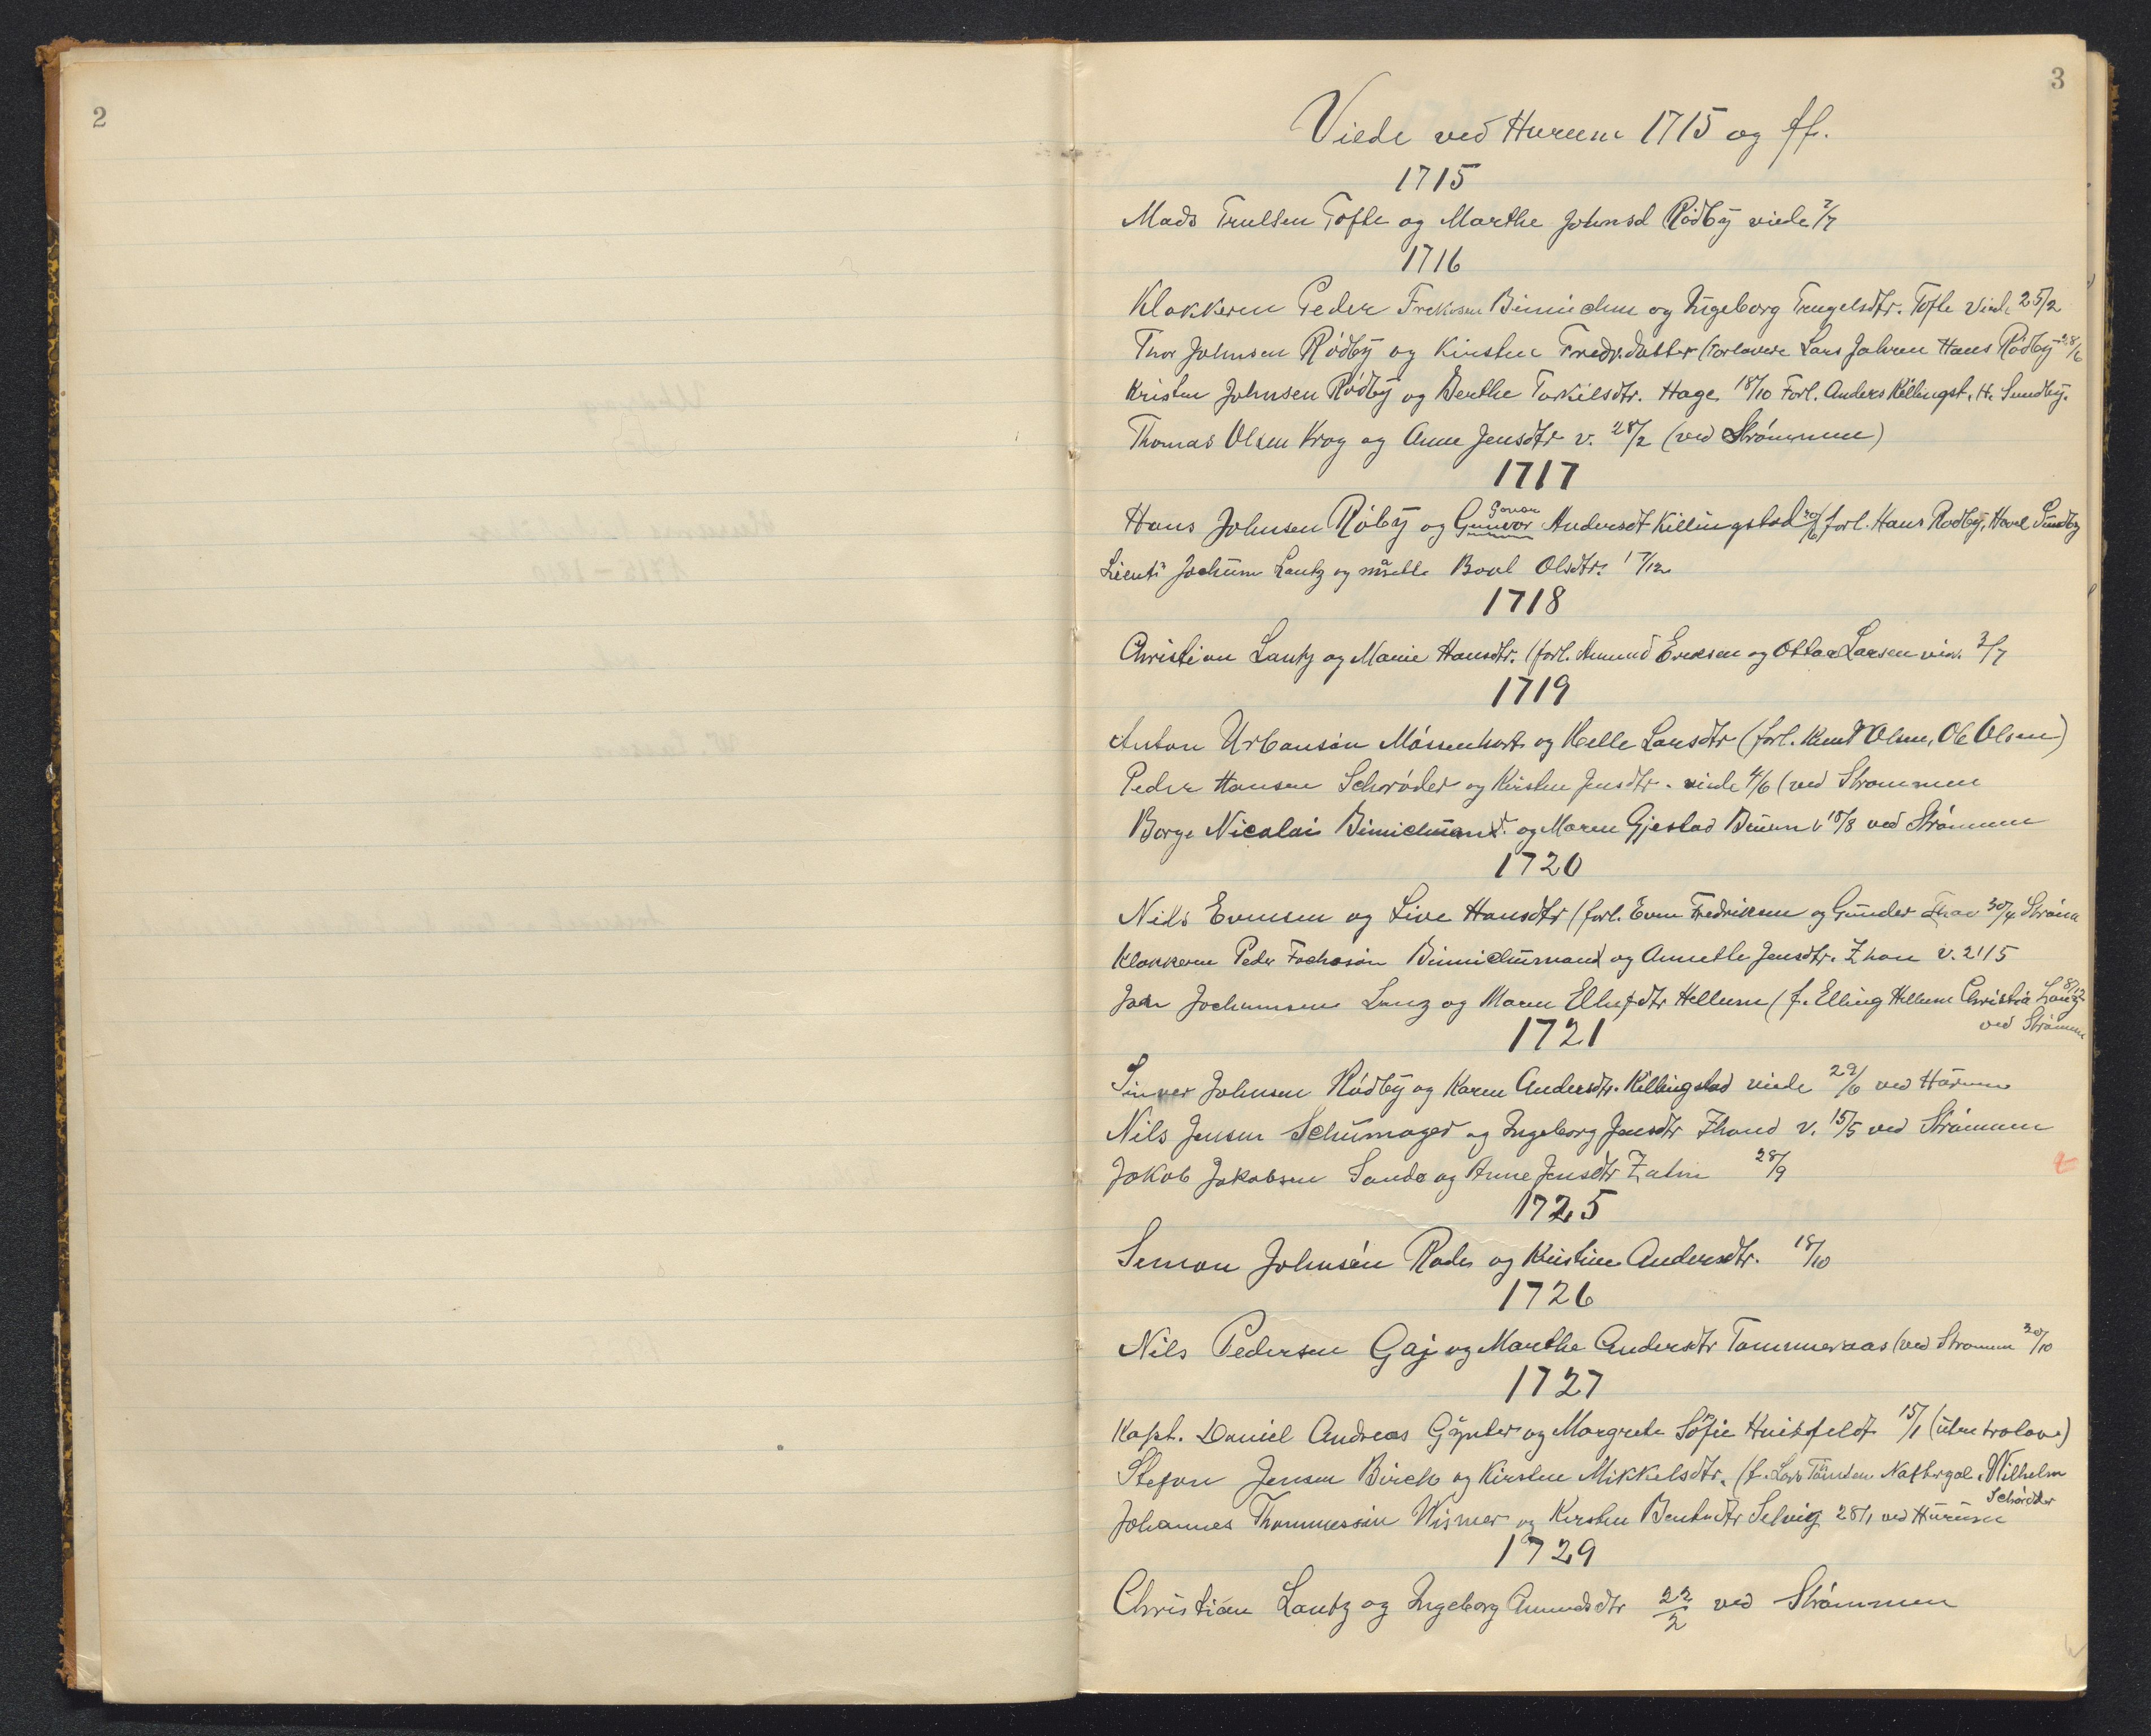 2
3
Viede ved Hurum 1715 og ff.
1715
Mads Trulsen Tofte og Marthe Johnsd Rödbÿ viede 7/7
1716
Klokkeren Peder Binnichm og Ingeborg Trugelsdtr. Tofte Viede 25/2
Thor Johnsen Rödbÿ og Kirsten Fredr.datter (Forlovere Lars Jahren Hans Rödbÿ 28/6
Kristen Johnsen Rödbÿ og Berthe Torkilsdtr. Hage 18/10 Forl. Anders Killingst. H. Sundbÿ.
Thomas Olsen Krog og Anne Jensdtr v. 28/2 (ved Strömmen)
1717
Hans Johnsen Röbÿ og Gunvor Andersdt Killingstad 20/6 forl. Hans Rodbÿ, Havel Sundby
Lieutn Jochum Lantz og Boel Olsdtr. 17/12
1718
Christian Lantz og Marie Hansdtr. (forl. Amund Eriksen og Ottar Larsen vied. 3/7
1719
Anton Urbansön og Helle Larsdtr (forl. Knud Olsen, Ole Olsen)
Peder Hansen Schröder og Kirsten Jensdtr. viede 4/6 (ved Strommen
Borge Nicolai Binnichmand. og Maren Gjestad Bruun v 18/8 ved Strömmen
1720
Nils Evensen og Live Hansdtr (forl. Even Fredriksen og Gunder Thor 30/4 Ström
Klokkeren Peder Binnichmand og Annette Jensdtr. Zhan v. 2/15
Jochumsen Lanz og Maren Ellingsdtr Hellum (f. Elling Hellum Christia Lanz 8/12
ved Strömme
1721
Johnsen Rödbÿ og Karen Andersdtr. Killingstad viede 29/6 ved Hürum
Nils Jensen Schumager og Ingeborg Jensdtr Zhand v. 15/5 ved Strömmen
Jakob Jakobsen Sande og Anne Jensdtr Zahn 28/9
1725
Semon Johnsén Rades og Kristine Andersdtr. 18/10
1726
Nils Pedersen Gaj og Marthe Andersdtr Tømmeraas (ved Strommen 30/10
1727
Kapt. Daniel Andreas Gÿnter og Margrete Sofie Huitfeldt 15/1 (uten trolove)
Stefan Jensen Birch og Kirsten Mikkelsdtr. (f. Lars Natbrgal. Wilhelm
Schöröder
Johannes Thommessön Wismer og Kirsten Bentsdtr Selvig 28/1 ved Hurum
1729
Christian Lantz og Ingeborg Amundsdtr 22/2 ved Strömmen